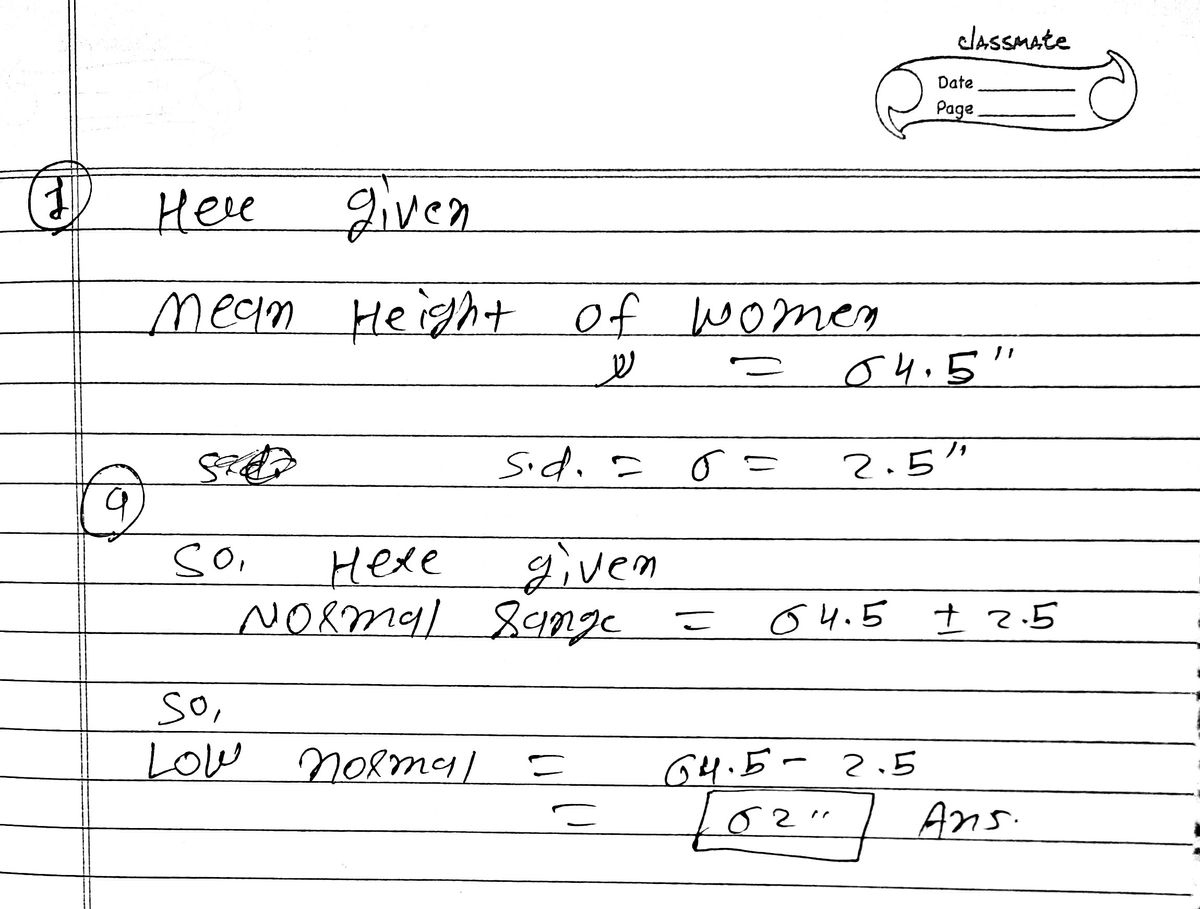 classmate
Date
Page
1 Here given
Mean Height of women
μ = 64.5"
s.d. = σ = 2.5"
a
So, Here given
Normal Range = 64.5 ± 2.5
So,
Low normal = 64.5 - 2.5
= 62" Ans.